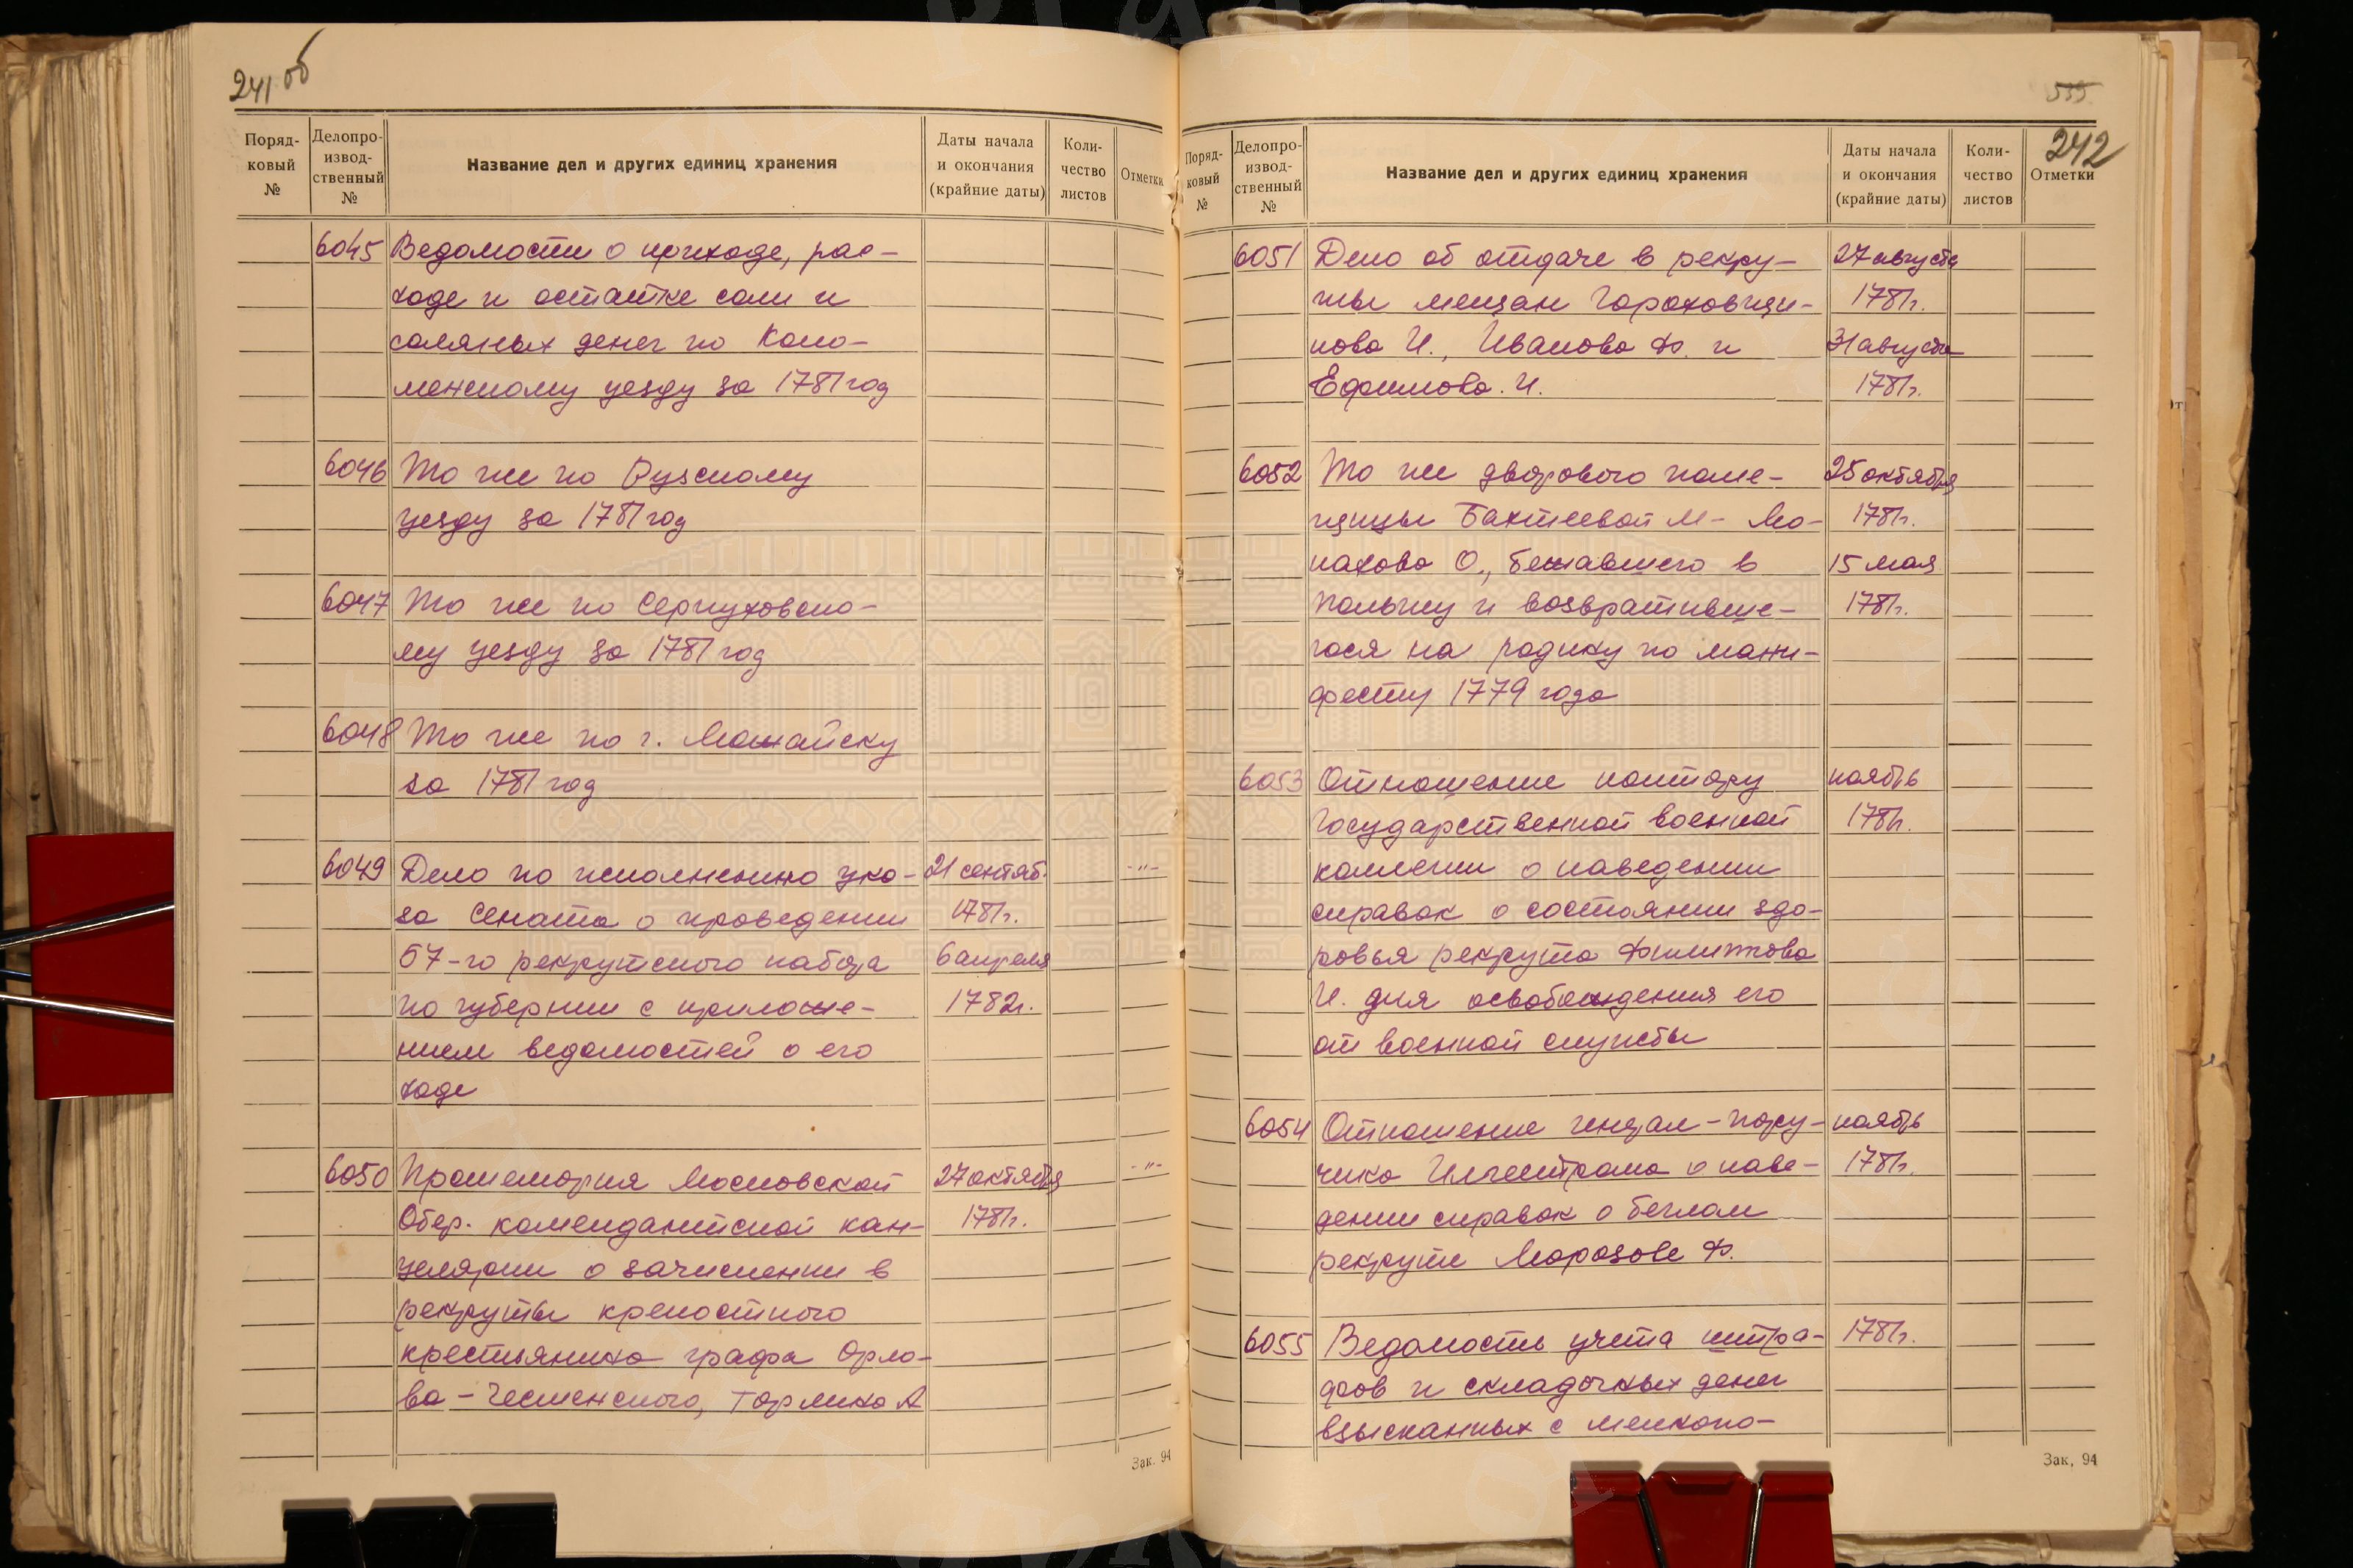 241 об
Поряд-
ковый
№
Делопро-
извод-
ственный
№
Название дел и других единиц хранения
Даты начала
и окончания
(крайние даты)
Коли-
чество
листов
Отметки
6045 Ведомости о приходе, рас-
ходе и остатке соли и
соляных денег по Коло-
менскому уезду за 1781 год
6046 То же по Рузскому
уезду за 1781 год
6047 То же по Серпуховско-
му уезду за 1781 год
6048 То же по г. Можайску
за 1781 год
6049 Дело по исполнению ука- 21 сентяб. -"-
за Сената о проведении 1781г.
67-го рекрутского набора 6 апреля
по губернии с приложе- 1782г.
нием ведомостей о его
ходе
6050 Промемория Московской 27 октября -"-
Обер. комендантской кан- 1781г.
целярии о зачислении в
рекруты крепостного
крестьянина графа Орло-
ва-Чесменского,
Зак. 94
242
Поряд-
ковый
№
Делопро-
извод-
ственный
№
Название дел и других единиц хранения
Даты начала
и окончания
(крайние даты)
Коли-
чество
листов
Отметки
6051 Дело об отдаче в рекру- 27 августа
ты мещан Гороховщи- 1781г.
кова И., Иванова Ф. и 31 августа
Ефимова. И. 1781г.
6052 То же дворового поме- 25 октября
щицы Бахтеевой М- Мо- 1781г.
нахова О., бежавшего в 15 мая
Польшу и возвративше- 1781г.
гося на родину по мани-
фесту 1779 года
6053 Отношение контору ноябрь
Государственной военной 1781г.
коллегии о наведении
справок о состоянии здо-
ровья рекрута Филиппова
И. для освобождения его
от военной службы
6054 Отношение генерал-пору- ноябрь
чика Игельстрома о наве- 1781г.
дении справок о беглом
рекруте Морозове Ф.
6055 Ведомость учета штра- 1781г.
фов и складочных денег
взысканных с мелкопо-
Зак, 94